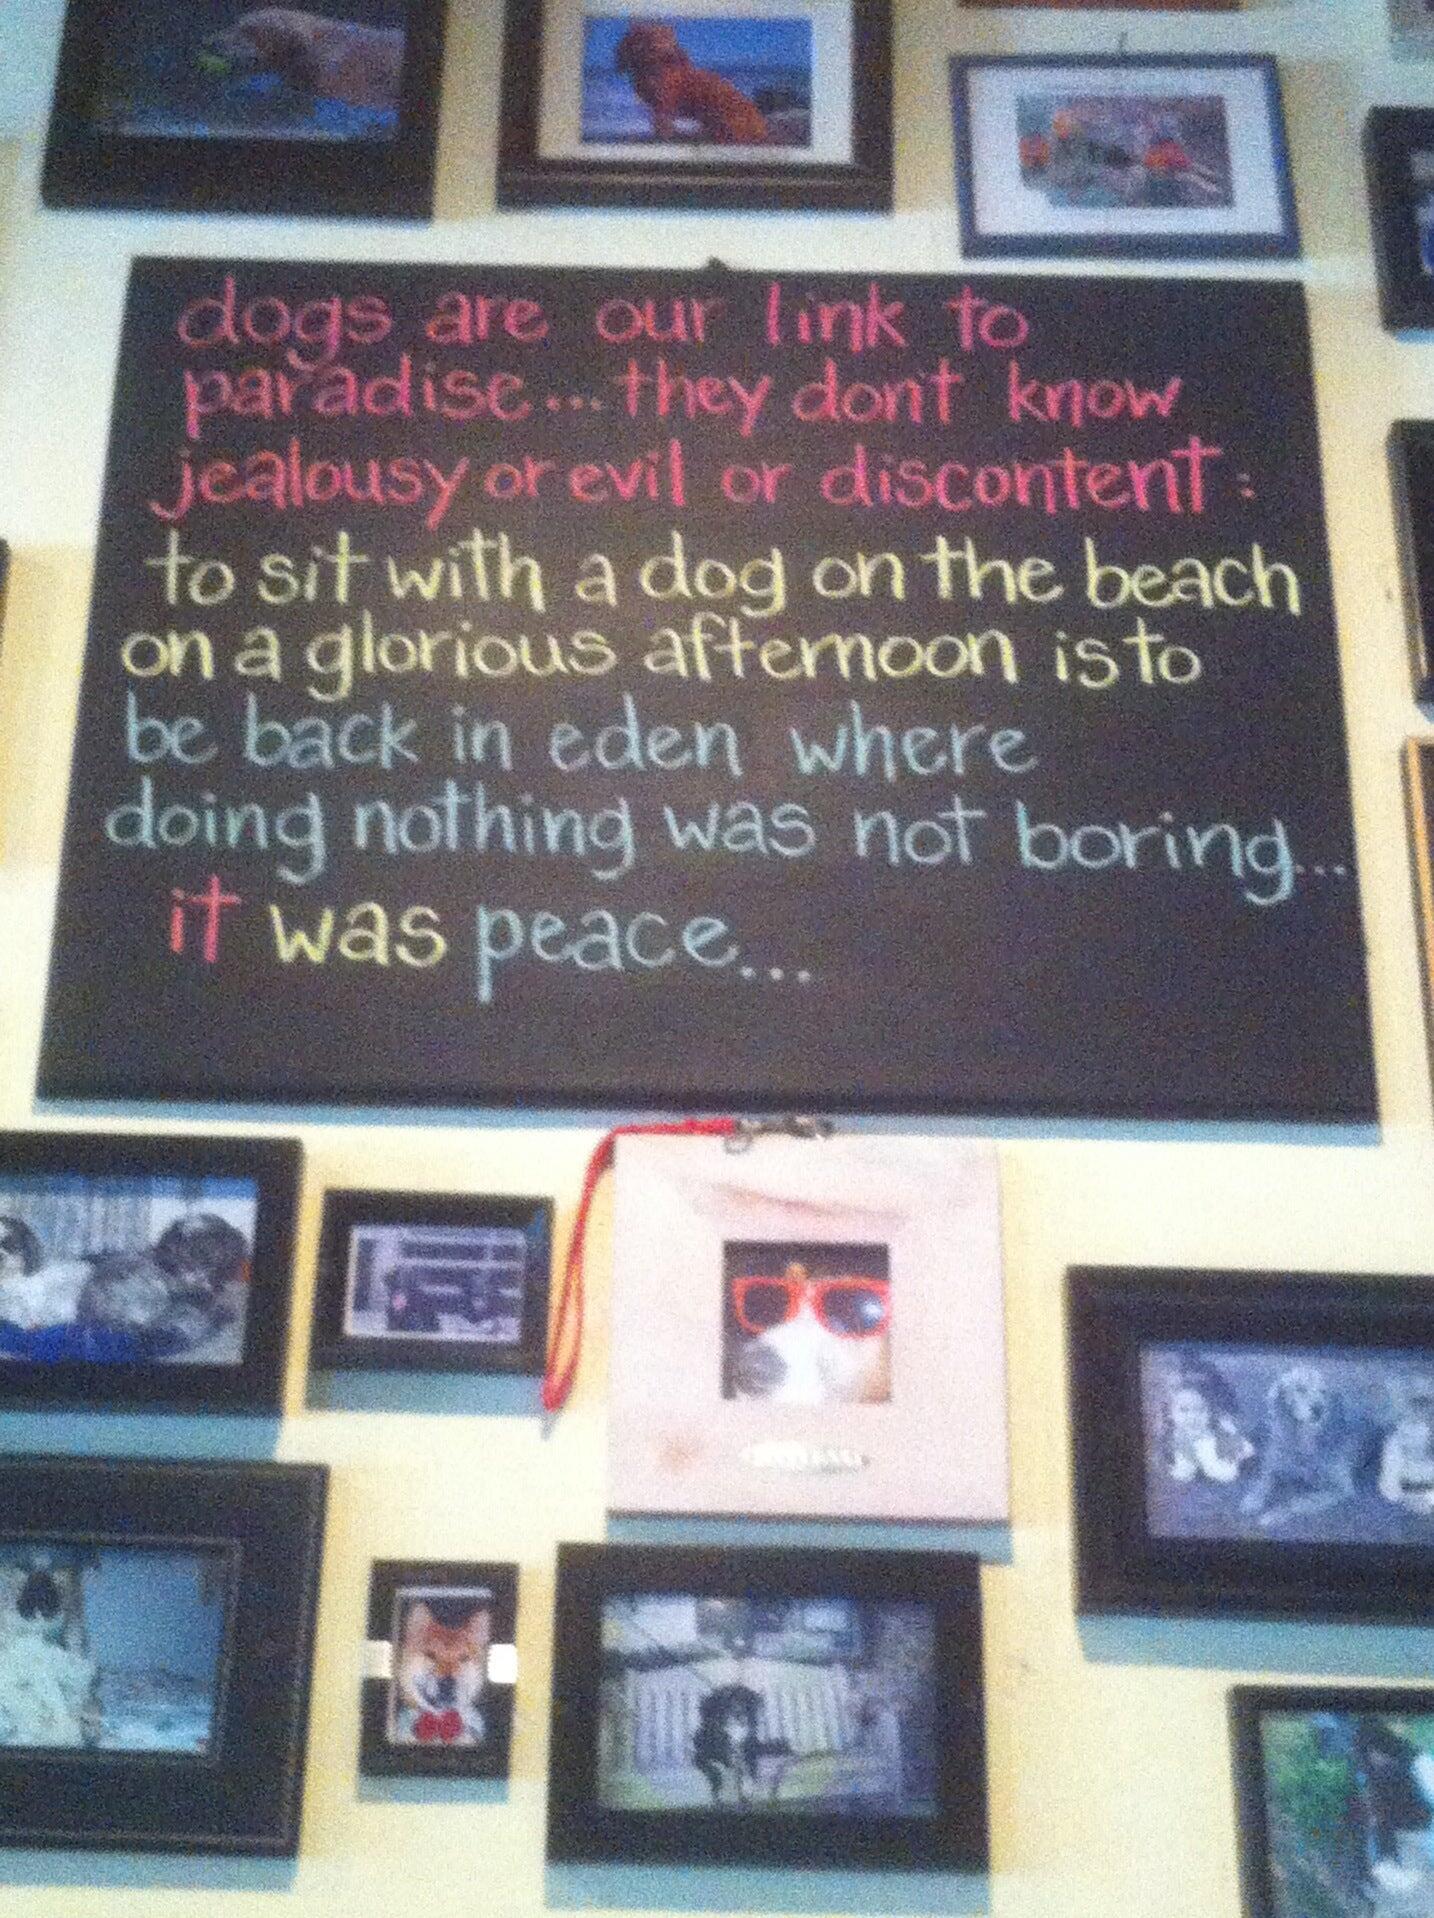 dogs are our link to
paradise... they don't know
jealousy or evil or discontent:
to sit with a dog on the beach
on a glorious afternoon is to
be back in eden where
doing nothing was not boring...
it was peace...